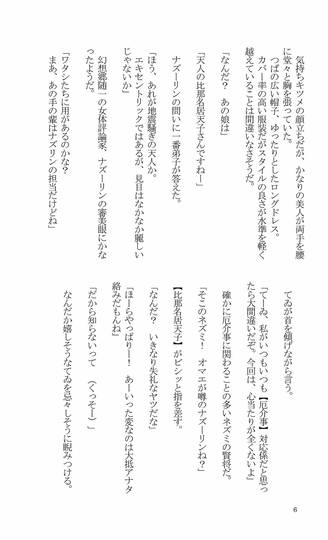 気持ちキツメの顔立ちだが、かなりの美人が両手を腰
に堂々と胸を張っていた。
つばの広い帽子、ゆったりとしたロングドレス。
カバー率の高い服装だがスタイルの良さが水準を軽く
越えていることは間違いなさそうだ。
「なんだ？　あの娘は」
「天人の比那名居天子さんですねー」
ナズーリンの問いに一番弟子が答えた。
「ほう、あれが地震騒ぎの天人か。
エキセントリックではあるが、見目はなかなか麗しい
じゃないか」
幻想郷随一の女体評論家、ナズーリンの審美眼にかな
ったようだ。
「ワタシたちに用があるのかな？
まあ、あの手の輩はナズリンの担当だけどね」
てゐが首を傾げながら言う。
「てーゐ、私がいつもいつも【厄介事】対応係だと思っ
たら大間違いだぞ。今回は、心当たりが全くないよ」
確かに厄介事に関わることの多いネズミの賢将だ。
「そこのネズミ！　オマエが噂のナズーリンね？」
【比那名居天子】がビシッと指を差す。
「なんだ？　いきなり失礼なヤツだな」
「ほーらやっぱりー！　あーいった変なのは大抵アナタ
絡みだもんね」
「だから知らないって　（くっそー）」
なんだか嬉しそうなてゐを忌々しそうに睨みつける。
6